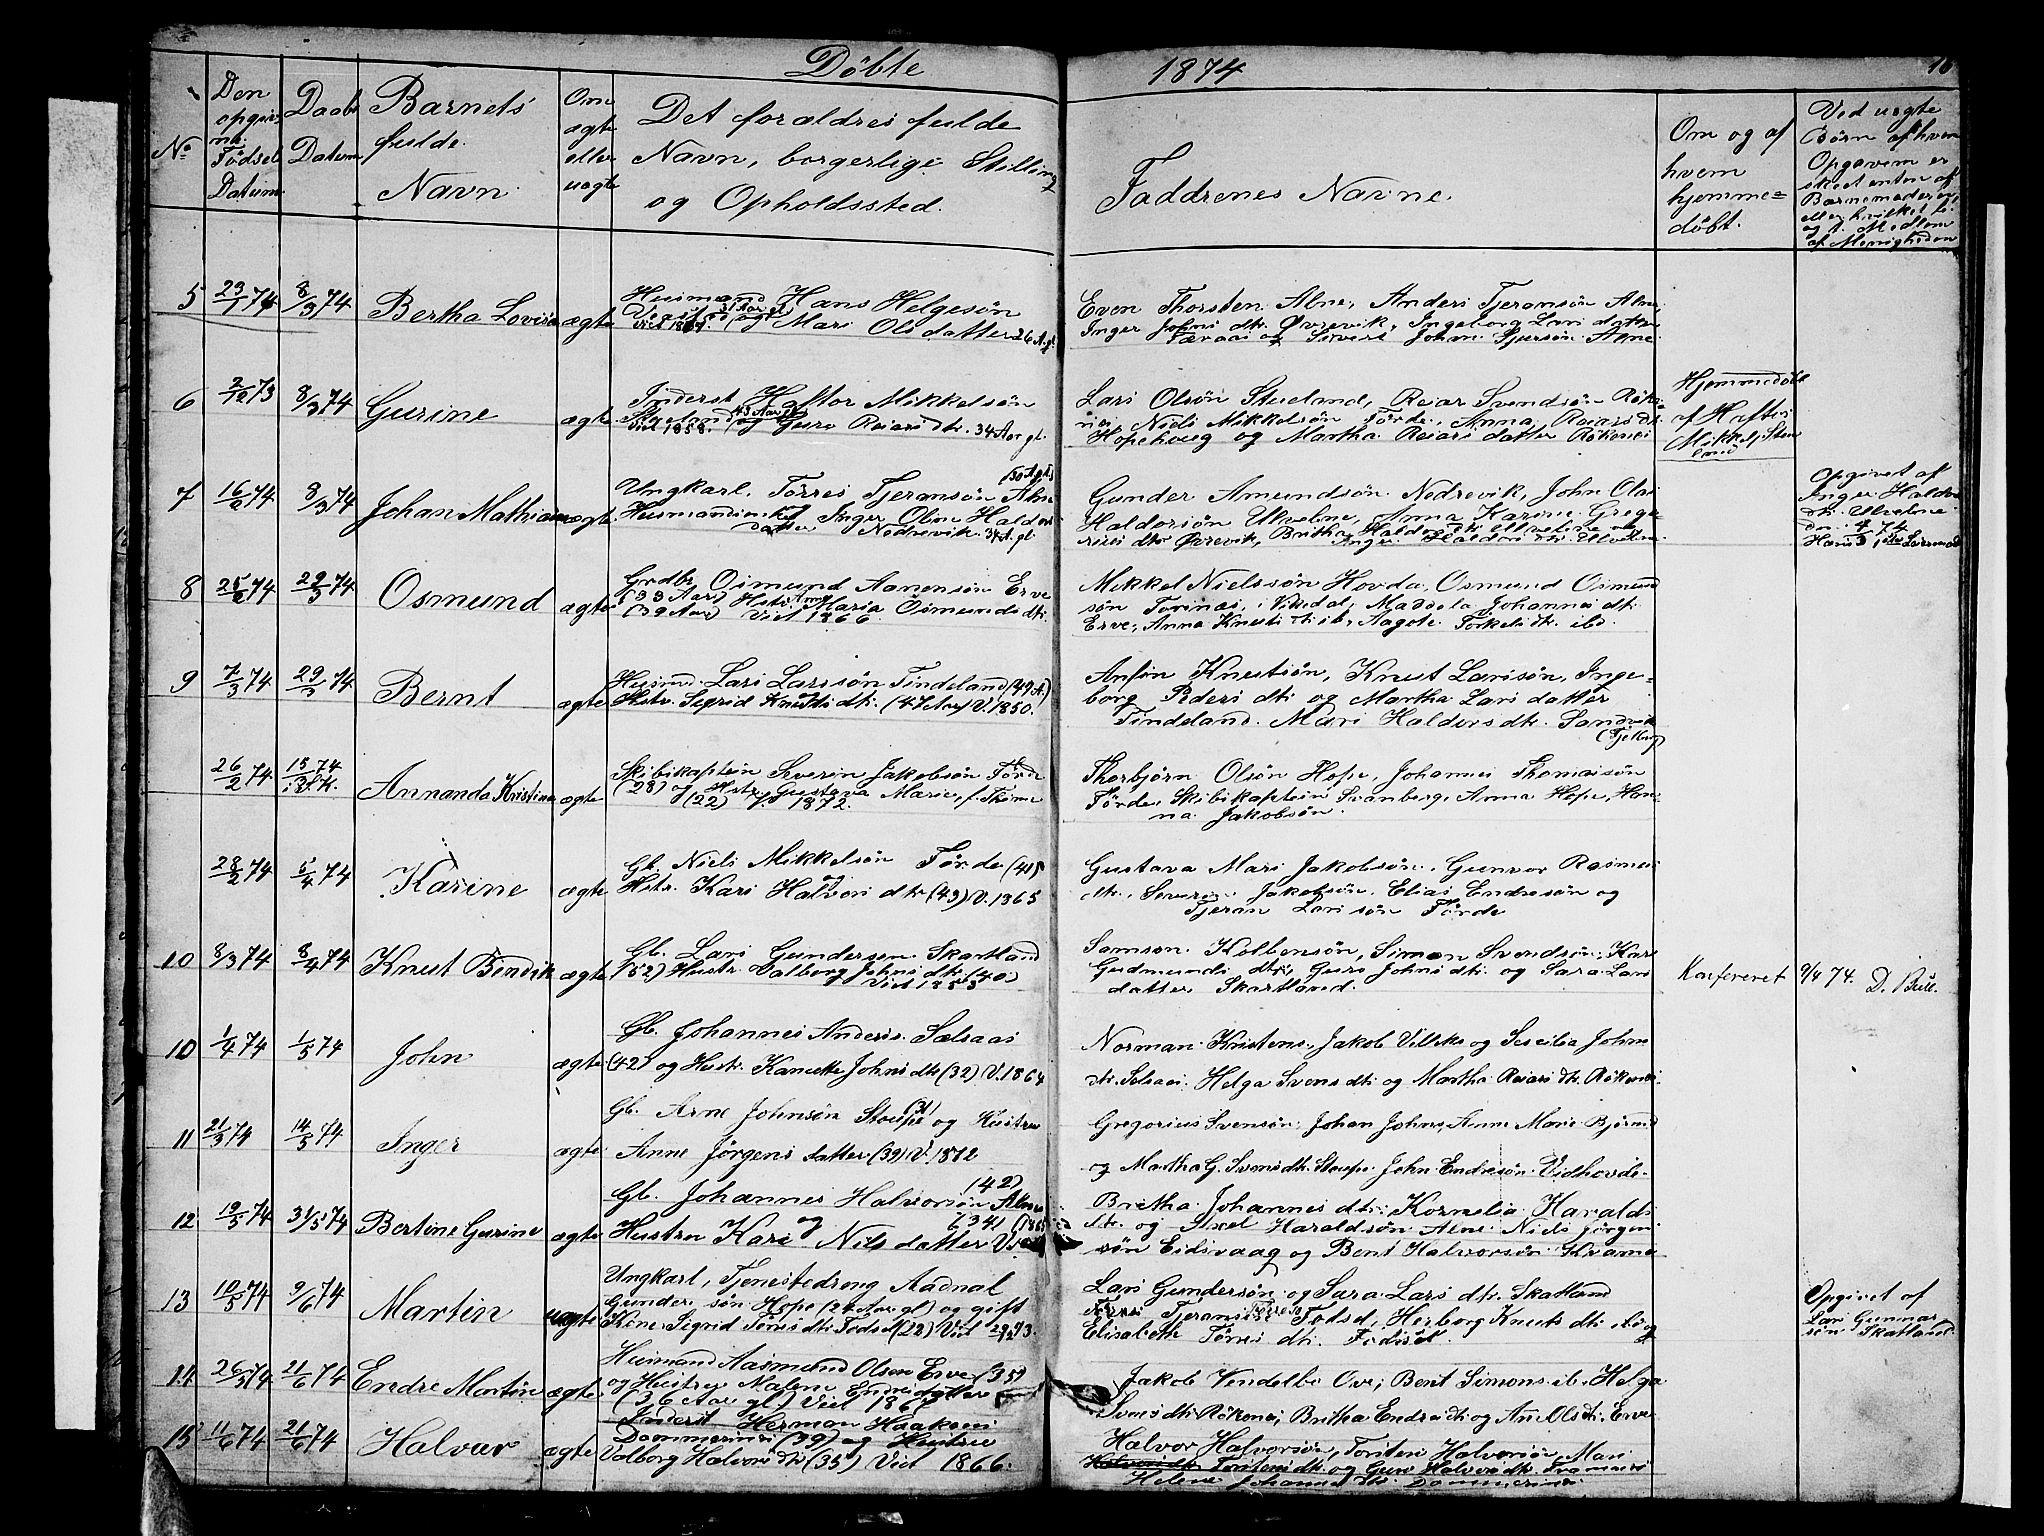 Döbte 1874 16
No
Den opgivne Födsel Datum
Daabs Datum
Barnets fulde Navn
Om ægte eller uægte
Det forældres fulde Navn, borgerlige Stilling og Opholdssted.
Faddrenes Navne.
Om og af hvem hjemme= döbt.
Ved uægte Börn af hvem Opgavem er skeet enten af Barnemoderen, eller hvilket
af Menigheden
5 23/1 74 8/3 74 Bertha Lovisa ægte
Husmand Hans Helgesön
31 Aar gl.
og Mari Olsdatter 26 A. gl.
Even Thorsten. Alne, Anders Tjeransön Alne,
Inger Johns dtr. Övrevik, Ingeborg Lars datter
og Sivert Johan Sjursön Alne
6 2/12 73 8/3 74 Gurine ægte
Inderst Haftor Mikkelsön
43 Aar gl.
Viet 1858. og Guro Reiers dtr. 34 Aar gl.
Lars Olsön Stueland, Reiar Svendsön Röke=
næs, Niels Mikkelsön Förde, Anna Reiars dtr.
Hopehoug og Martha Reiars datter Rökenes
Hjemmedöbt
af Haftor
Mikkels. Stue
land
7 16/2 74 8/3 74 Johan Mathias ægte
(30 A. gl.)
Ungkarl, Törres Tjeransön Alne
Husmandsenke Inger Oline Haldors
datter Nedrevik. 34 A. gl.
Gunder Amundsön Nedrevik, John Olai
Haldorsön Ulvelne, Anna Karine Grego=
rius dtr Övrevik, Britha Haldors dtr Ulvelne og
Inge Haldors dtr. Ulvelne
Opgivet af
Inger Haldors
dtr. Ulvelne
dn. 4/3 74
Hans 1ste Leiermaal
8 25/2 74 29/3 74 Osmund ægte
Grdbr. Osmund Aanensön Erve
(33 Aar) Hstr. Anna Maria Osmunds dtr.
(39 Aar) Viet 1866
Mikkel Nielssön Hovda, Osmund Osmund
sön Torines, i Vikedal, Madsela Johannes dtr.
Erve, Anna Knuts dtr ib., Aagote Torkels dtr. ibd.
9 7/3 74 29/3 74 Bernt ægte
Husmd. Lars Larssön Tindeland (49 A.)
Hstr. Sigrid Knuts dtr. (47 Aar) V. 1850.
Anfin Knutsön, Knut Larssön, Inge=
borg Peders dtr og Martha Lars datter
Tindeland. Mari Haldors dtr. Sandvik
(Fjelberg)
26/2 74 15/3 74 Annanda Kristine ægte
Skibskaptein Severin Jakobsön Förde
(28) og Hstr. Gustava Marie, f. Thome
(22) V. 1872.
Thorbjörn Olsön Hope, Johannes Thomassön
Förde, Skibskaptein Svanberg, Anna Hope, Han=
na Jakobsön.
28/2 74 5/4 74 Karine ægte
Gb. Niels Mikkelsön Förde (41)
og
Hstr. Kari Halvors dtr (43) V. 1865
Gustava Mari Jakobsön, Gunvor Rasmus
dtr., Severin Jakobsön, Elias Endresön og
Tjeran Larssön Förde
10 8/3 74 8/4 74 Knut Bendik ægte
Gb. Lars Gundersen Skartland
(52) Hustr. Valborg Johns dtr (40)
Viet 1855
Samson Kolbensön, Simon Svendsön, Kari
Gudmunds dtr, Guro Johns dtr. og Sara Lars
datter Skartland.
Konfereret 9/4 74. D. Bull.
10 1/4 74 1/5 74 John ægte
Gb. Johannes Anders. Sælsaas
(42) og Hustr. Kanutte Johns dtr (32) V. 1864
Norman Kristens., Jakob Villiks og Sescilia Johns
dtr. Selsaas. Helga Svens dtr og Martha Reiars dtr. Rökenes.
11 21/3 74 14/5 74 Inger ægte
Gb. Arne Johnsön Stoupe (31) og Hustru
Anne Jörgens datter (39) V. 1872
Gregorius Svensön, Johan Johns, Anne Marie Björned
og Martha G. Svens dtr. Stoupe. John Endresön Vidhovde
12 19/5 74 31/5 74 Bertine Gurine ægte
(42)
Gb. Johannes Halvorsön Alne
og
Hustru Kari Nils datter Viet
Britha Johannes dtr. Kornelia Haralds
dtr. og Axel Haraldsön Alne. Niels Jörgen=
sön Eidsvaag og Bent Halvorsön Kvame
13 10/5 74 9/6 74 Martin uægte
Ungkarl, Tjenestedreng Aadnal
Gunder sön Hope (27 Aar gl) og gift
Kone Sigrid Törres dtr. Fodsed (22) Viet 73.
Lars Gundersön og Sara Lars dtr. Skatland
Tjeransön Fodsed, Herborg Knuts dtr. og
Elisabeth Törres dtr. Fodsed.
Opgivet af
Lars Gunnar
sön Skatland
14 26/5 74 21/6 74 Endre Martin ægte
Husmand Aasmund Olsen Erve (35)
og Hustru Malene Endres datter
(36 Aar gl) Viet
Jakob Vendelbo Ove; Bent Simons. ib. Helga
Svens dtr. Rökenes, Britha Endres dtr og An Ols dtr. Erve
15 11/6 74 21/6 74 Halvar ægte
Inderst Herman Haakons
Dommersnes (39) og Hustru
Valborg Halvors dtr (35) Viet 1866.
Halvor Halvorsön, Torsten Halvorsön, Mari
Torstens dtr. og Guro Halvors dtr. Framnes
Helene Johannes dtr. Dommersnes